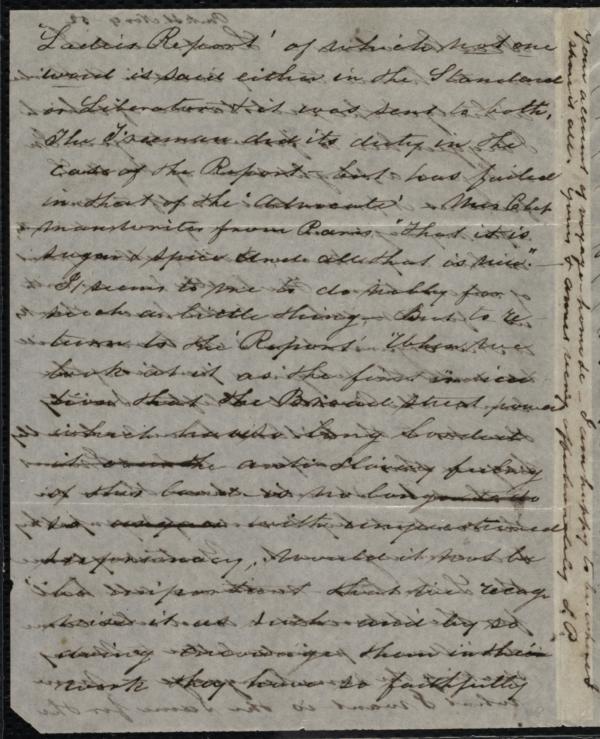 Ladies Report' of which not one
word is said either in the Standard
or Liberator & it was sent to both,
The Freeman did its duty in the
case of the Report - but has failed
in that of the 'Advocate' - Mrs Chap
man writes from Paris "That it is
sugar & spice and all that is nice"
It seems to me to do nobly for
such a little thing - But to re
turn to the 'Report' When we
look at it as the first indica
tion that the Broad street power
which has so long
it over the anti slavery feeling
of this land is no longer to do
so with unquestioned
supremacy, would it not be
important that we recog
nise it as such and by so
doing encourage them in their
work they have so faithfully
Your account of voyage home
I am happy to
Yours & affectionately